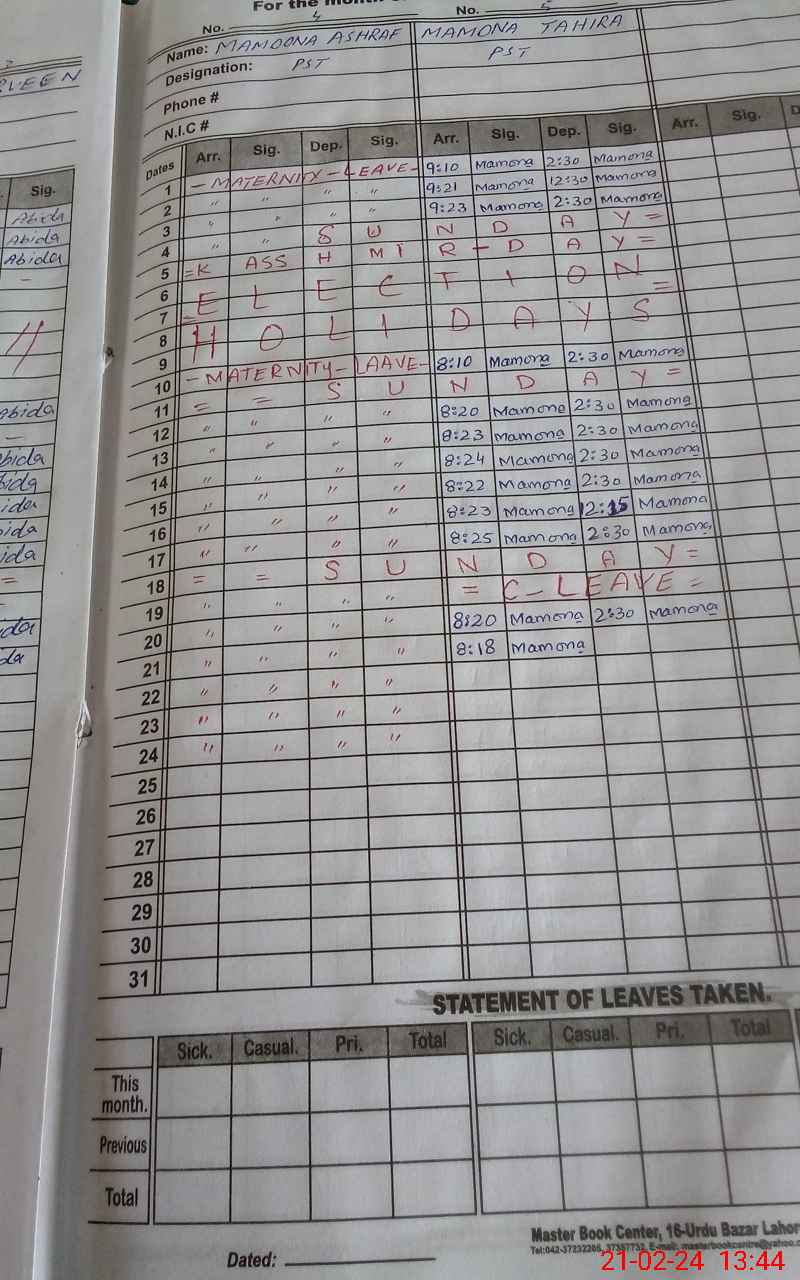 For the month
No. 4 No. 5
Name: MAMOONA ASHRAF MAMONA TAHIRA
Designation: PST PST
Phone #
N.I.C #
Dates Arr. Sig. Dep. Sig. Arr. Sig. Dep. Sig. Arr. Sig.
1 - MATERNITY - LEAVE - 9:10 Mamona 2:30 Mamona
2 " " " " 9:21 Mamona 12:30 Mamona
3 " " " " 9:23 Mamona 2:30 Mamona
4 " " S U N D A Y =
5 = K ASS H MI R - D A Y =
6 E L E C T I O N =
7 =
8 H O L I D A Y S
9
10 - MATERNITY - LAAVE - 8:10 Mamona 2:30 Mamona
11 = = S U N D A Y =
12 " " " " 8:20 Mamona 2:30 Mamona
13 " " " " 8:23 Mamona 2:30 Mamona
14 " " " " 8:24 Mamona 2:30 Mamona
15 " " " " 8:22 Mamona 2:30 Mamona
16 " " " " 8:23 Mamona 12:15 Mamona
17 " " " " 8:25 Mamona 2:30 Mamona
18 = = S U N D A Y =
19 " " " " = C - LEAVE =
20 " " " " 8:20 Mamona 2:30 Mamona
21 " " " " 8:18 Mamona
22 " " " "
23 " " " "
24 " " " "
25
26
27
28
29
30
31
STATEMENT OF LEAVES TAKEN.
Sick. Casual. Pri. Total Sick. Casual. Pri. Total
This month.
Previous
Total
Master Book Center, 16-Urdu Bazar Lahor
Dated:
21-02-24 13:44
Sig.
Abida
Abida
Abida
Abida